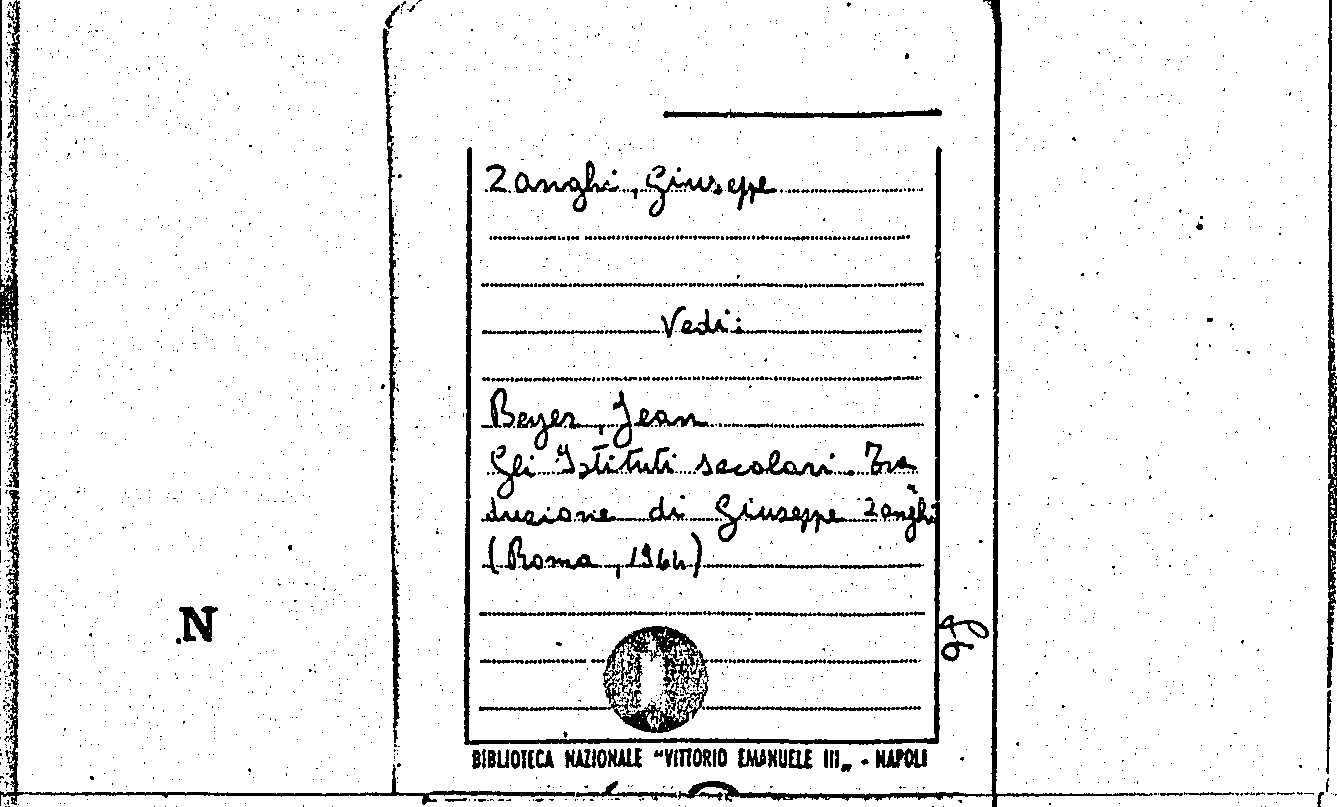 Zanghi, Giuseppe
Vedi:
Beyer, Jean
Gli Istituti secolari. Tra
duzione di Giuseppe Zanghi
(Roma, 1964)
N
BIBLIOTECA NAZIONALE "VITTORIO EMANUELE III„ - NAPOLI